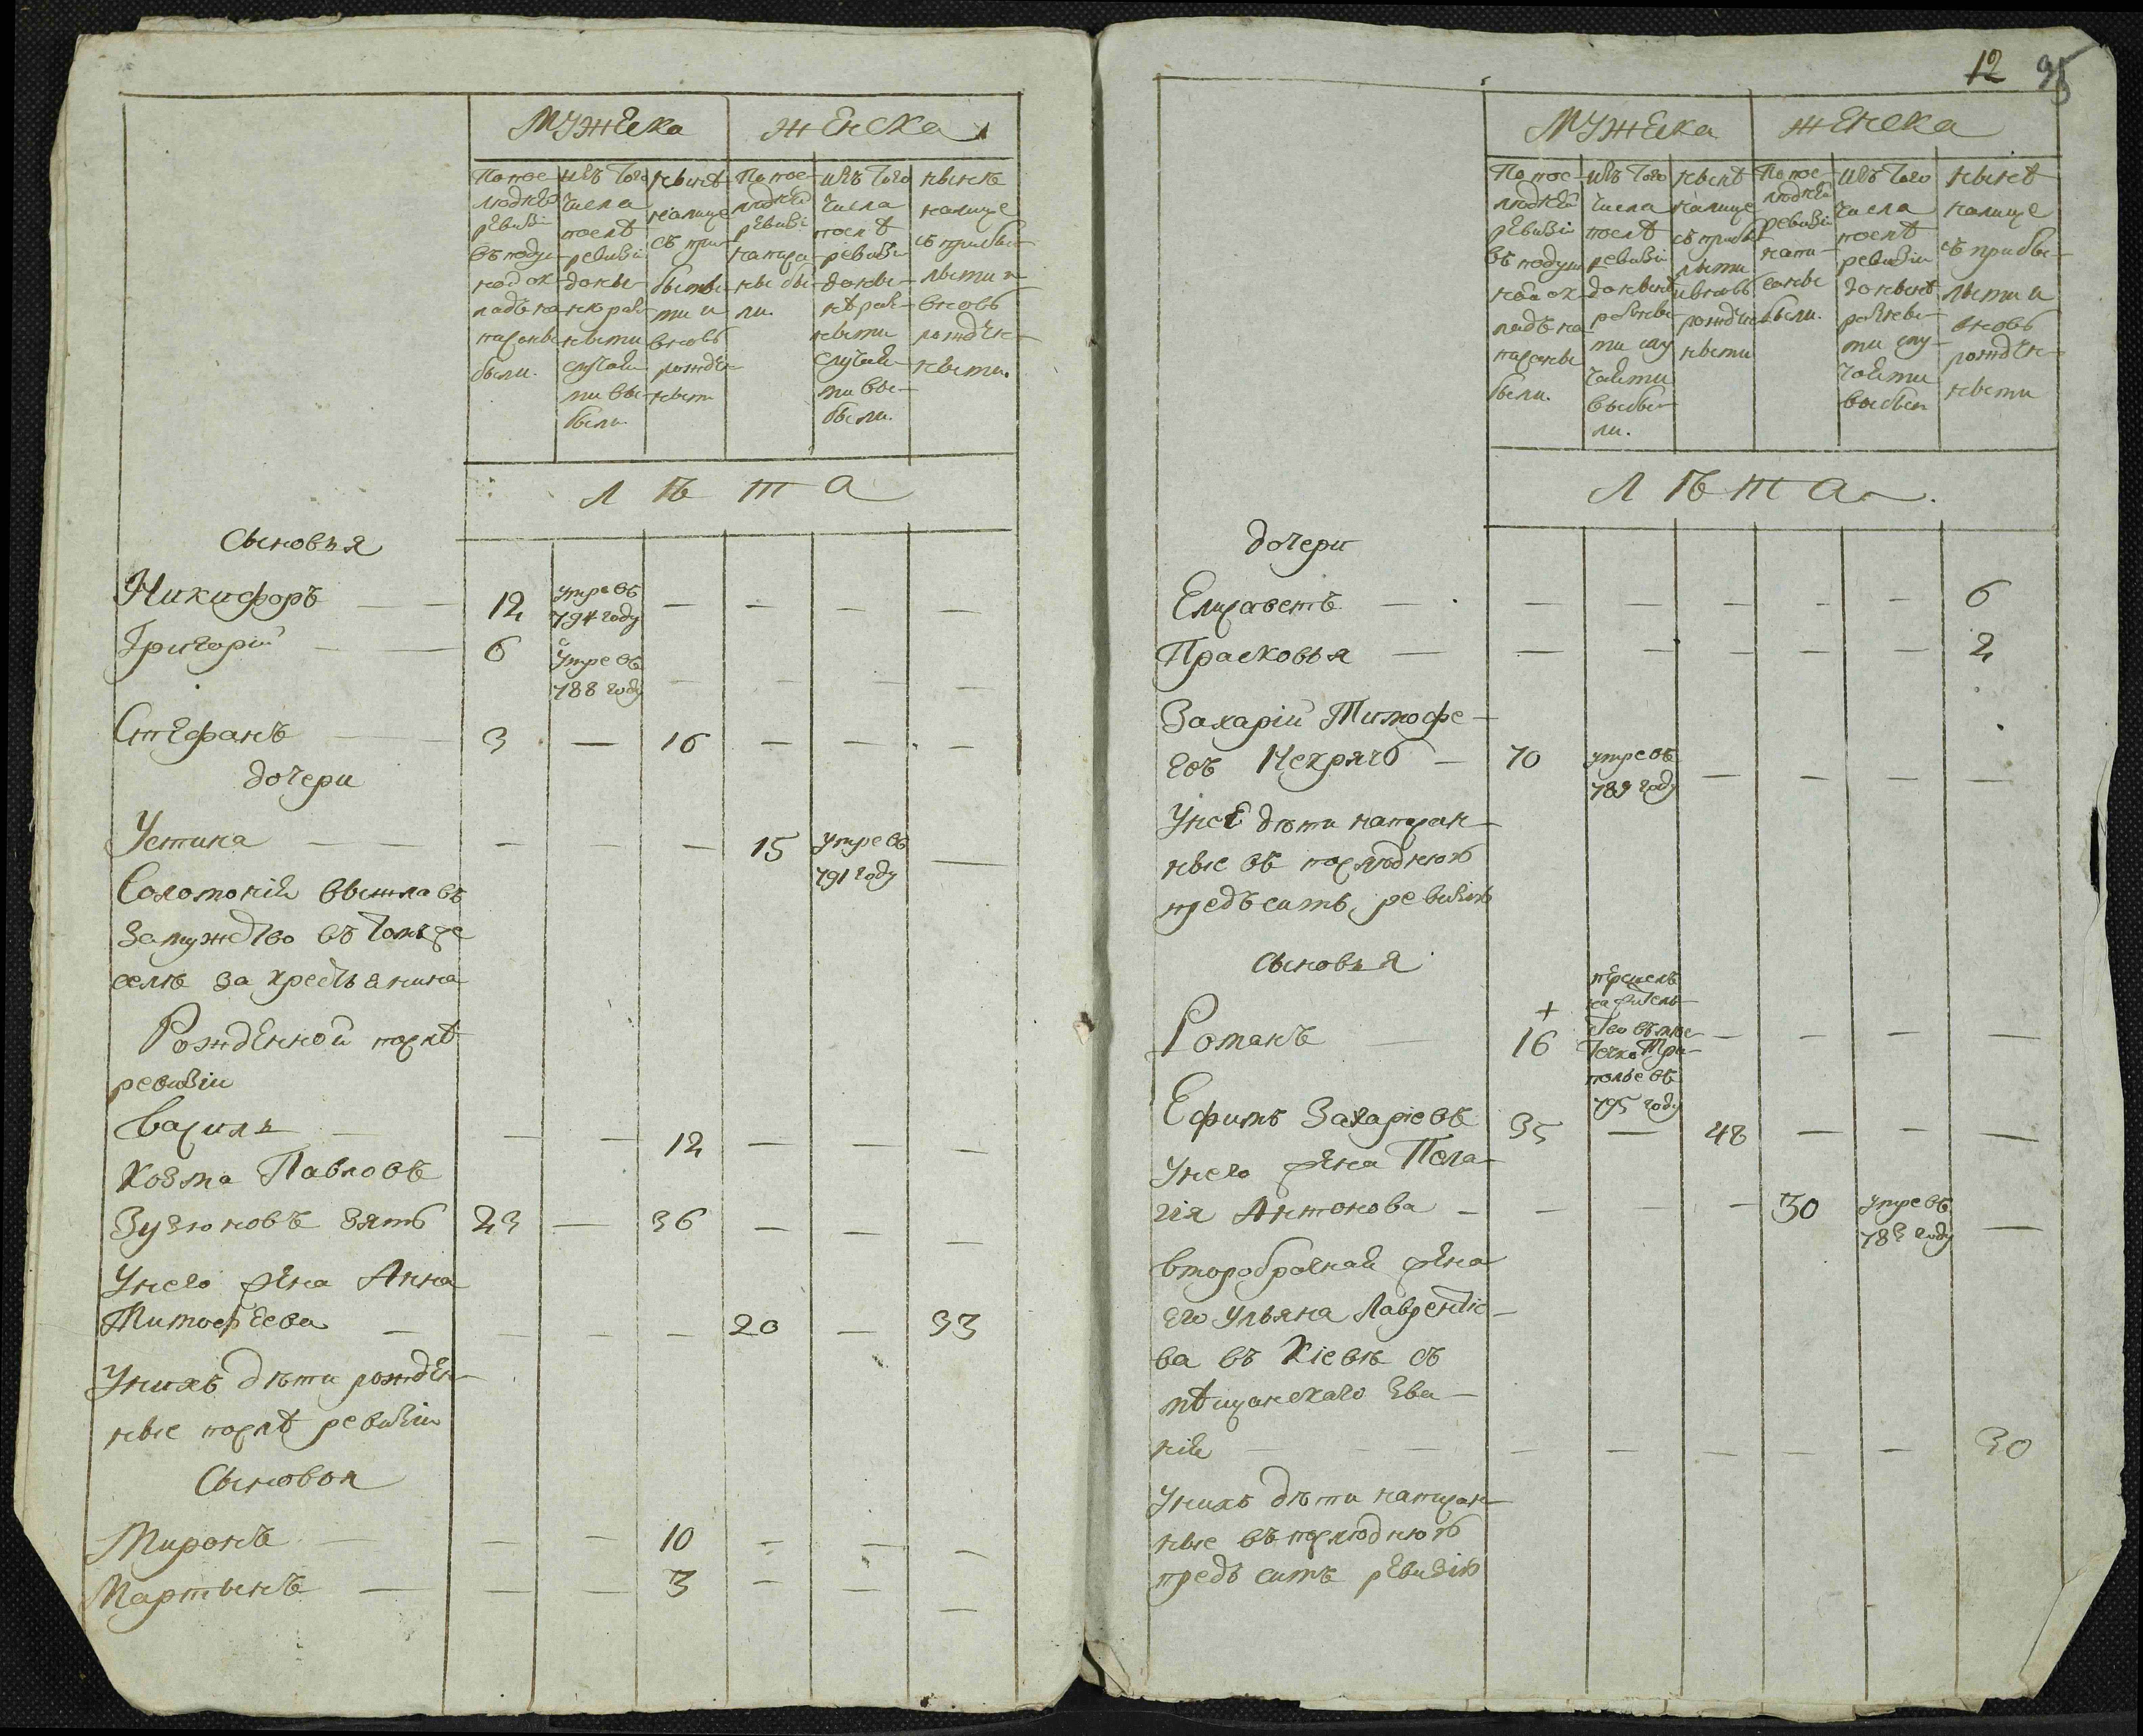 мужеска женска
По пос-
ледней
ревизіи
въ подуш-
ной ок-
ладъ на-
писаны
были.
изъ того
числа
послѣ
ревизіи
до ны-
не раз-
ными
случая-
ми вы-
были
нынѣ
налице
съ при-
былы-
ми и
вновь
рожден-
ными
По пос-
ледней
ревизіи
написа-
ны бы-
ли.
изъ того
числа
послѣ
ревизіи
до ны-
нѣ раз-
ными
случая-
ми вы-
были.
нынѣ
налице
съ прибы-
лыми и
вновь
рожден-
ными.
лѣта
сыновья
Никифоръ — 12 умре въ 794 году — — — —
Григорій — 6 умре въ 788 году — — — —
Стефанъ — 3 — 16 — — —
дочери
Устина — — — — 15 умре въ 791 году —
Соломонія вышла въ
замужство въ томъ же
селе за крестьянина
Рожденной послѣ
ревизіи
Василь — — — 12 — — —
Козма Павловъ
Зузюковъ зять 23 — 36 — — —
Унего жена Анна
Тимофеева — — — — 20 — 33
Унихъ дѣти рожден-
ные послѣ ревизіи
Сыновья
Миронъ — — — 10 — — —
Мартынъ — — — 3 — — —
12 95
мужеска женска
По пос-
ледней
ревизіи
въ подуш-
ной ок-
ладъ на-
писаны
были.
изъ того
числа
послѣ
ревизіи
до нынѣ
разны-
ми слу-
чаями
выбы-
ли.
нынѣ
налице
съ прибы-
лыми
и вновь
рожден-
ными
По пос-
ледней
ревизіи
напи-
саны
были.
изъ того
числа
послѣ
ревизіи
до нынѣ
разны-
ми слу-
чаями
выбыли
нынѣ
налице
съ прибы-
лыми и
вновь
рожден-
ными
лѣта.
дочери
Елизаветъ — — — — — — 6
Прасковья — — — — — — 2
Захарій Тимофе-
евъ Некрячъ — 70 умре въ 789 году — — — —
Унего дѣти написан-
ные въ последнюю
предъ симъ ревизію
сыновья
Романъ — + 16 — — — —
795 году
Ефимъ Захаріевъ 35 — 48 — — —
Унего жена Пела-
гія Антонова — — — — 30 умре въ году —
второбрачная жена
его Ульяна Лаврентіе-
ва въ Кіеве съ
мѣщанскаго зва-
нія — — — — — — 30
Унихъ дѣти написан-
ные въ последнюю
предъ симъ ревизію